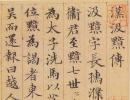 漢汲黯傳
汲黯字長孺濮
衛君至黯七世
為太子洗馬以
位黯為謁者東
吳而還報曰越人